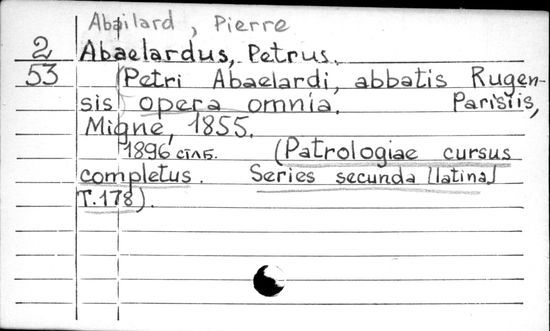 Abailard, Pierre
2 Abaelardus, Petrus.
53 (Petri Abaelardi, abbatis Rugen-
sis opera omnia. Parisiis,
Migne, 1855.
1896 стлб. (Patrologiae cursus
completus. Series secunda [latina]
T.178).